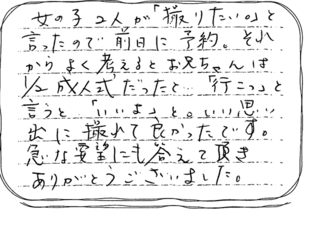 女の子2人が「撮りたい。」と
言ったので前日に予約。それ
からよく考えるとお兄ちゃんは
1/2成人式だったと…「行こっ」と
言うと「いいよ」と。いい思い
出に撮れて良かったです。
急な要望にも答えて頂き
ありがとうございました。